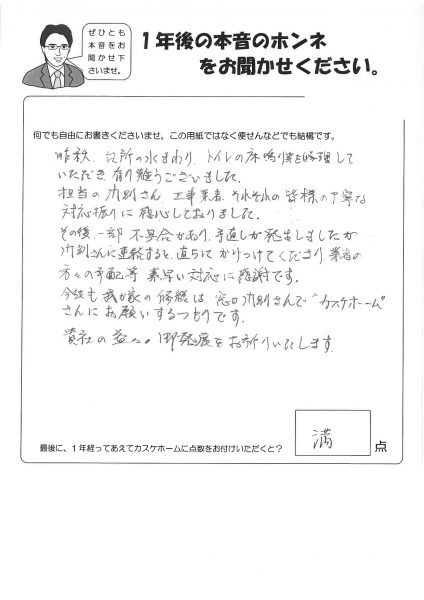 ぜひとも
本音をお
聞かせ下
さいませ。
1年後の本音のホンネ
をお聞かせください。
何でも自由にお書きくださいませ。この用紙ではなく便せんなどでも結構です。
昨秋、台所の水まわり、トイレの床鳴り等を修理して
いただき、有り難うございました。
担当の さん、工事業者、それぞれの皆様の丁寧な
対応振りに感心しておりました。
その後、一部不具合があり、手直しが発生しましたが
さんに連絡すると、直ちにかけつけてくださり、業者の
方々の手配等 素早い対応に感謝です。
今後も我が家の修繕は、窓口 さんで"カスケホーム"
さんにお願いするつもりです。
貴社の益々の御発展をお祈りいたします。
最後に、1年経ってあえてカスケホームに点数をお付けいただくと?
満
点